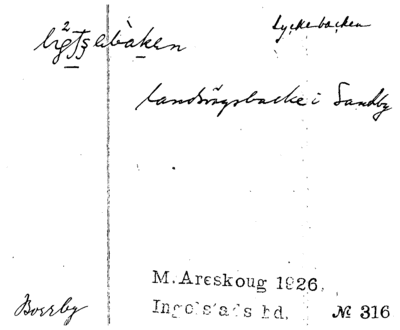 Lyckebacken
landsvägsbacke i Sandby
M. Areskoug 1926.
Borrby
Ingelstads hd. № 316